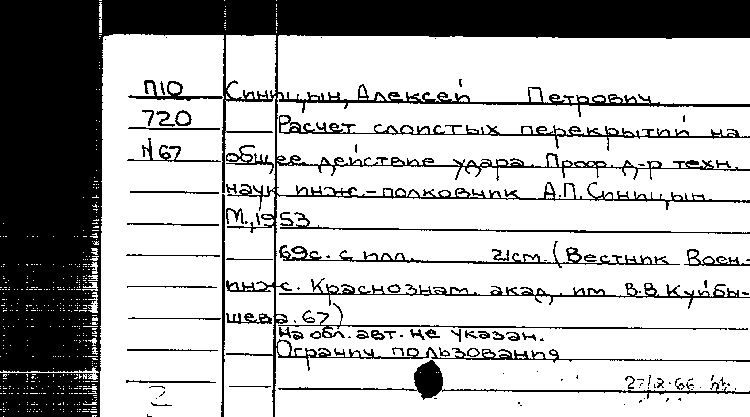 П10 Синицын, Алексей Петрович
720 Расчет слоистых перекрытий на
N67 общее действие удара. Проф. д-р техн.
наук инж.-полковник А.П. Синицын.
М., 1953
69с. с илл. 21см. (Вестник Воен.-
инж. Краснознам. акад. им В.В. Куйбы-
шева. 67)
На обл. авт. не указан.
Огранич. пользования